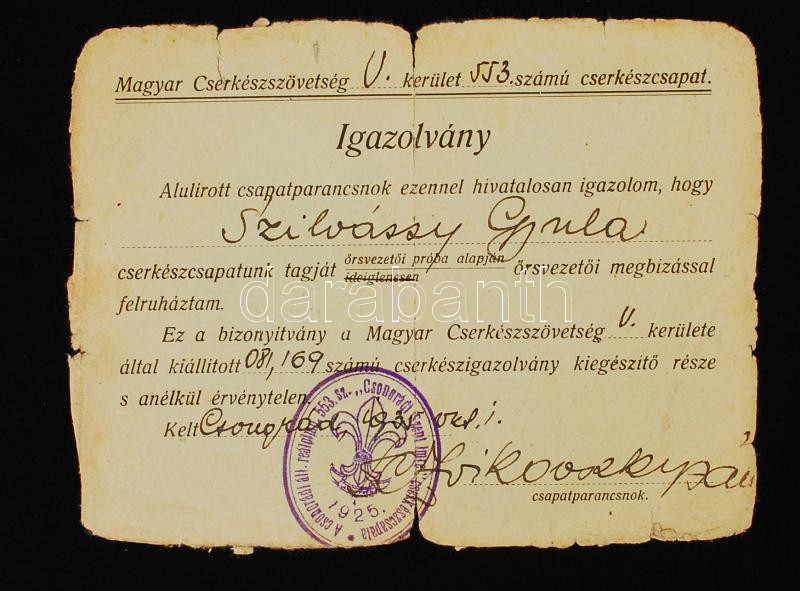 Magyar Cserkészszövetség V. kerület 553. számú cserkészcsapat.
Igazolvány
Alulírott csapatparancsnok ezennel hivatalosan igazolom, hogy
Szilvássy Gyula
cserkészcsapatunk tagját őrsvezetői próba alapján őrsvezetői megbizással
ideiglenesen
felruháztam.
darabanth
Ez a bizonyítvány a Magyar Cserkészszövetség V. kerülete
által kiállított 081,169 számú cserkészigazolvány kiegészítő része
s anélkül érvénytelen.
Kelt Csongrád, 1935
csapatparancsnok.
A csongrádi áll. reálgimn. 553. sz. „Csongrádi Szent Imre" cserkészcsapata
1925.